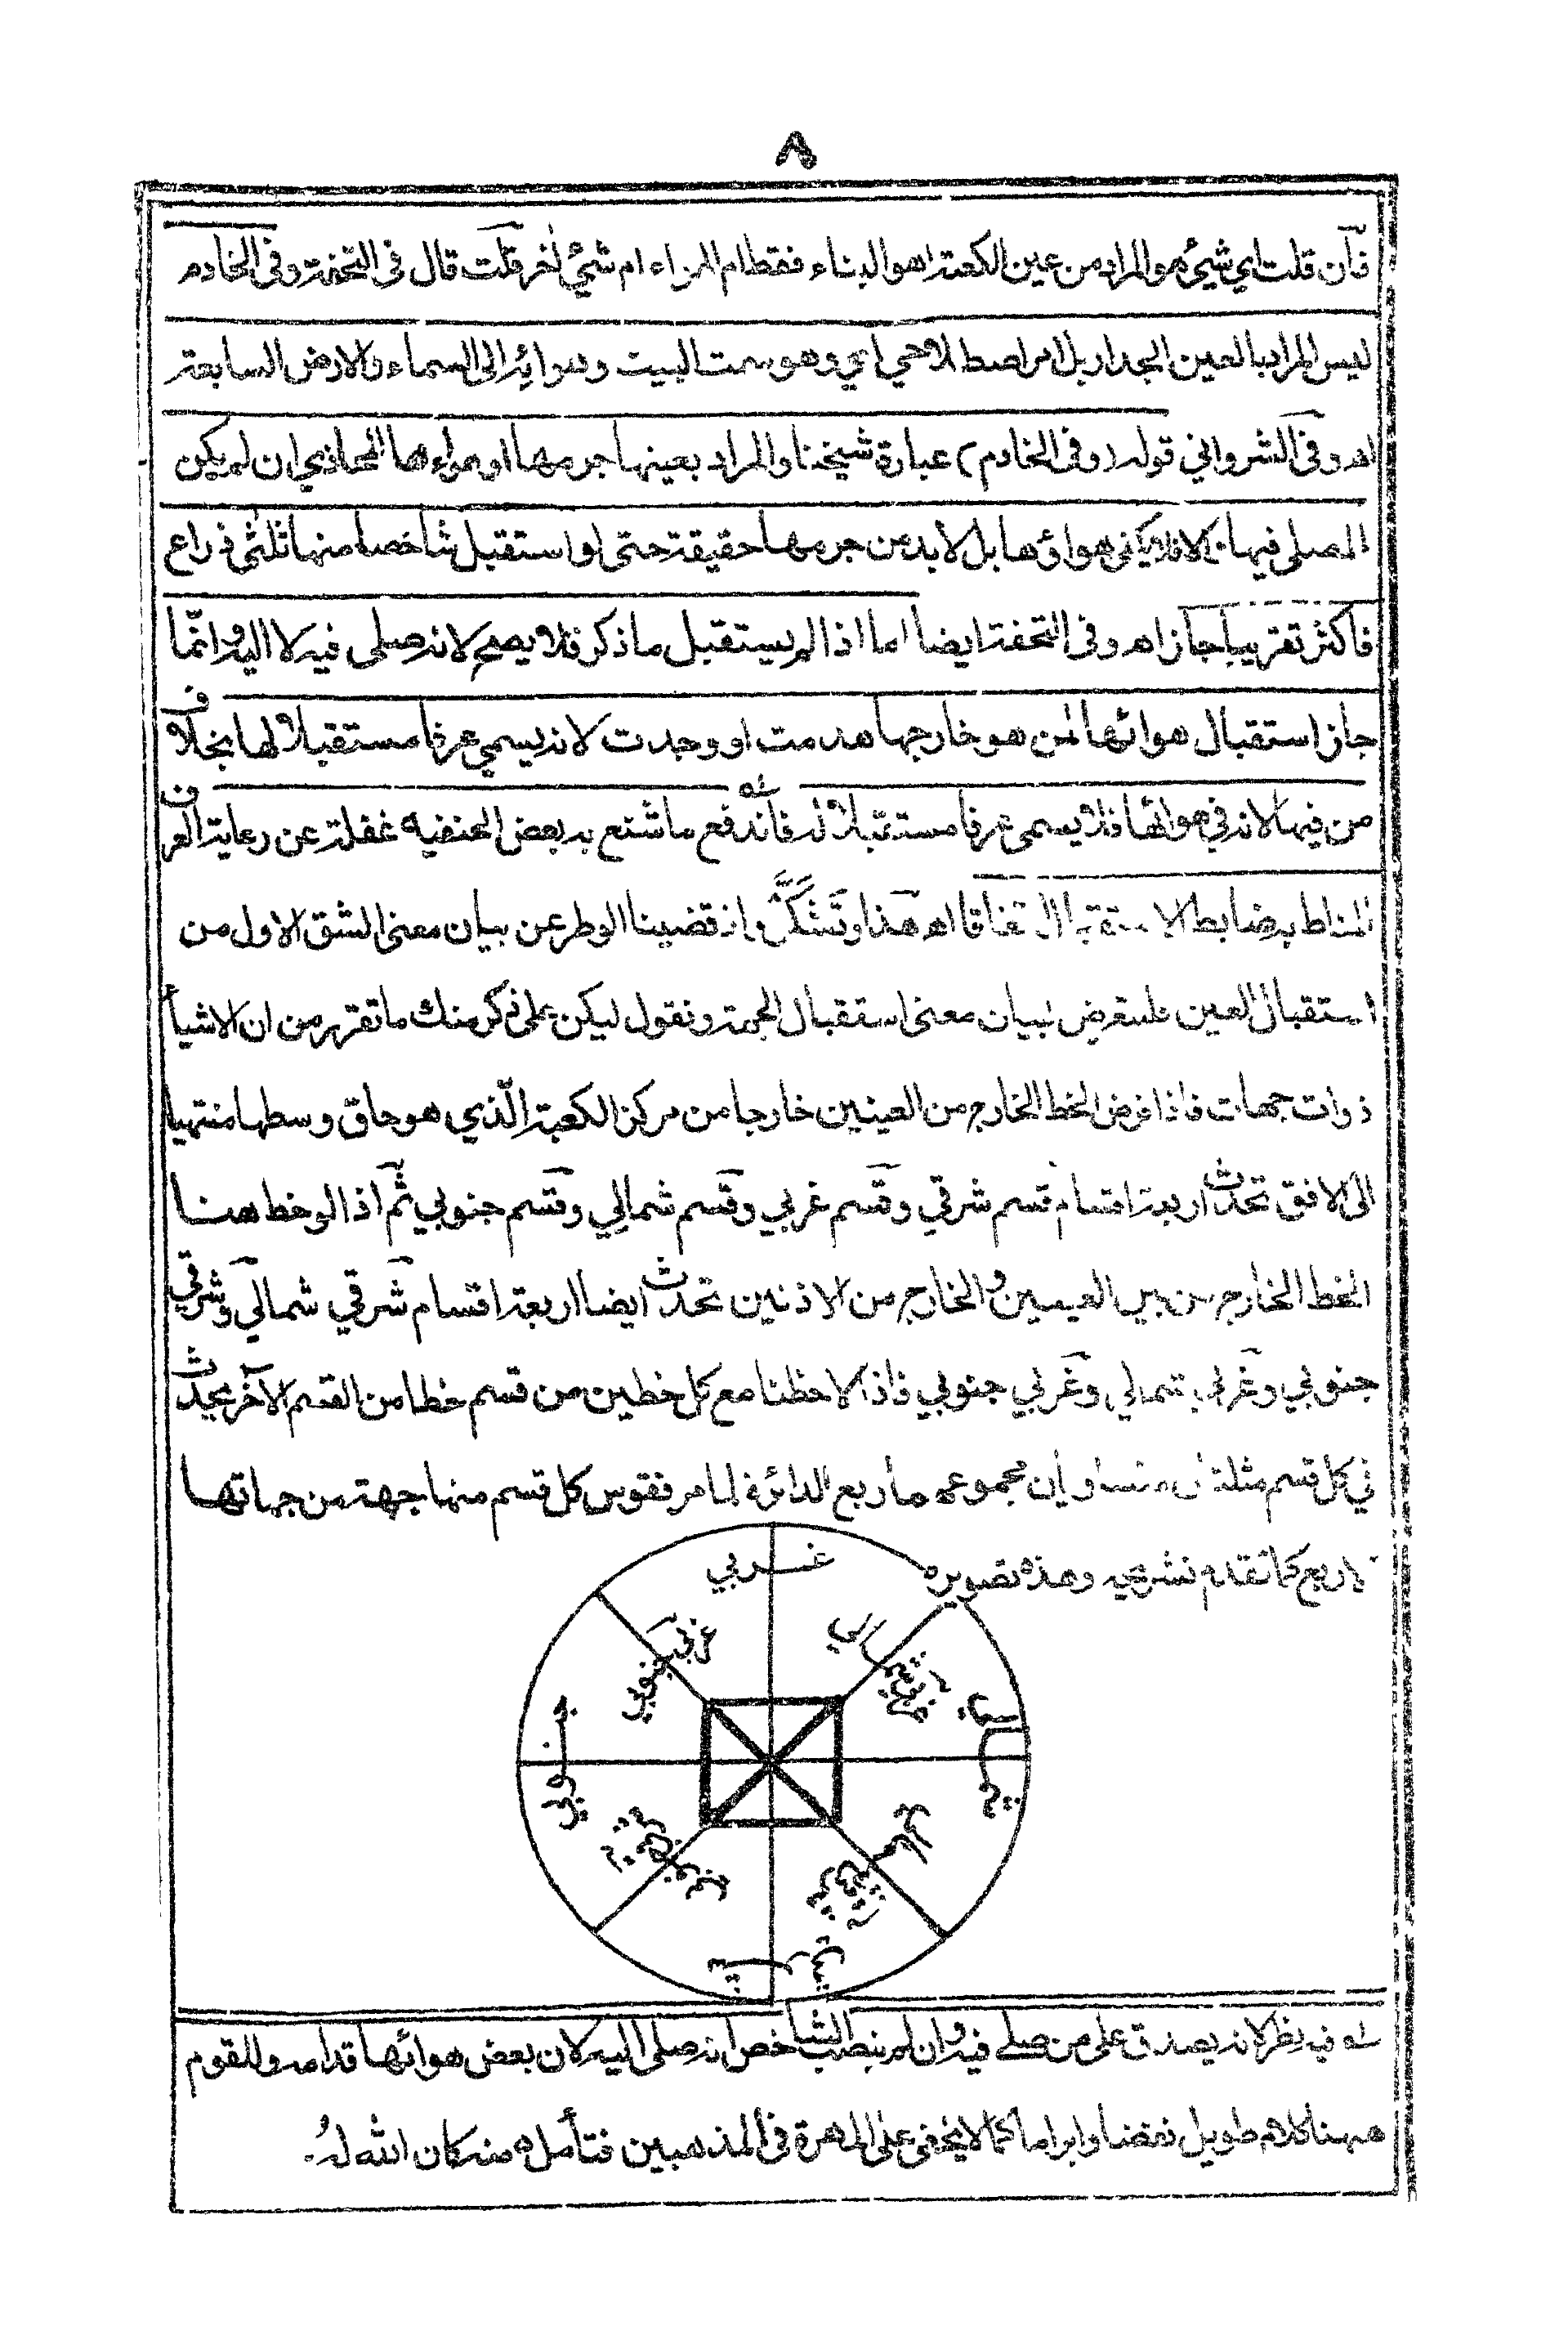 ٨
فآن قلت اي شيئ هو المراد من عين الكعبة اهو البناء فقط ام الهواء ام شيئ اٰخر قلت قال في التحفة وفي الخادم
ليس المراد بالعين الجدار بل امر اصطلاحي اي وهو سمت البيت وهوائه الى السماء والارض السابعة
اه وفي الشرواني قوله (وفي الخادم) عبارة شيخنا والمراد بعينها جرمها او هواءها المحاذي ان لم يكن
المصلي فيها والا فلا يكفي هواؤها بل لا بد من جرمها حقيقة حتى لو استقبل شاخصا منها ثلثي ذراع
فاكثر تقريبا جاز اه وفي التحفة ايضا اما اذا لم يستقبل ما ذكر فلا يصح لانه صلى فيه لا اليه وانّما
جاز استقبال هوائها لمن هو خارجها هدمت او وجدت لانه يسمى عرفا مستقبلا لها بخلاف
من فيها لانه في هوائها فلا يسمى عرفا مستقبلا له فاندفع ما شنع به بعض الحنفيه غفلة عن رعاية العرف
المناط به ضابط الاستقبال اتفاقا اه هذا وتَشَكَّر واذ قضينا الوطر عن بيان معنى الشق الاول من
استقبال العين فلنتعرض لبيان معنى استقبال الجهة ونقول ليكن على ذكر منك ما تقرر من ان الاشيأ
ذوات جهات فاذا فرض الخط الخارج من العينين خارجا من مركز الكعبة الّذي هو حاق وسطها منتهيا
الى الافق تحدث اربعة اقسام قسم شرقي وقسم غربي وقسم شمالي وقسم جنوبي ثم اذا لوحظ هنا
الخط الخارج من بين العينين والخارج من الاذنين تحدث ايضا اربعة اقسام شرقي شمالي وشرقي
جنوبي وغربي شمالي وغربي جنوبي فاذا لاحظنا مع كل خطين من قسم خطا من القسم الآخر يحدث
في كل قسم مثلة وان مجموعه ما ربع الدائرة لما مر فقوس كل قسم منها جهة من جهاتها
لاربع كما تقدم تشريحه وهذه تصويره
غربي
غربي شمالي
غربي جنوبي
شمالي
جنوبي
شرقي شمالي
شرقي جنوبي
شرقي
له فيه نظر لانه يصدق على من صلى فيه وان لم ينصب الشاخص انه صلى اليه لان بعض هوائها قدامه وللقوم
ههنا كلام طويل نقضا وابراما كما لا يخفى على المهرة في المذهبين فتأمل ه منه كان الله لهُ.